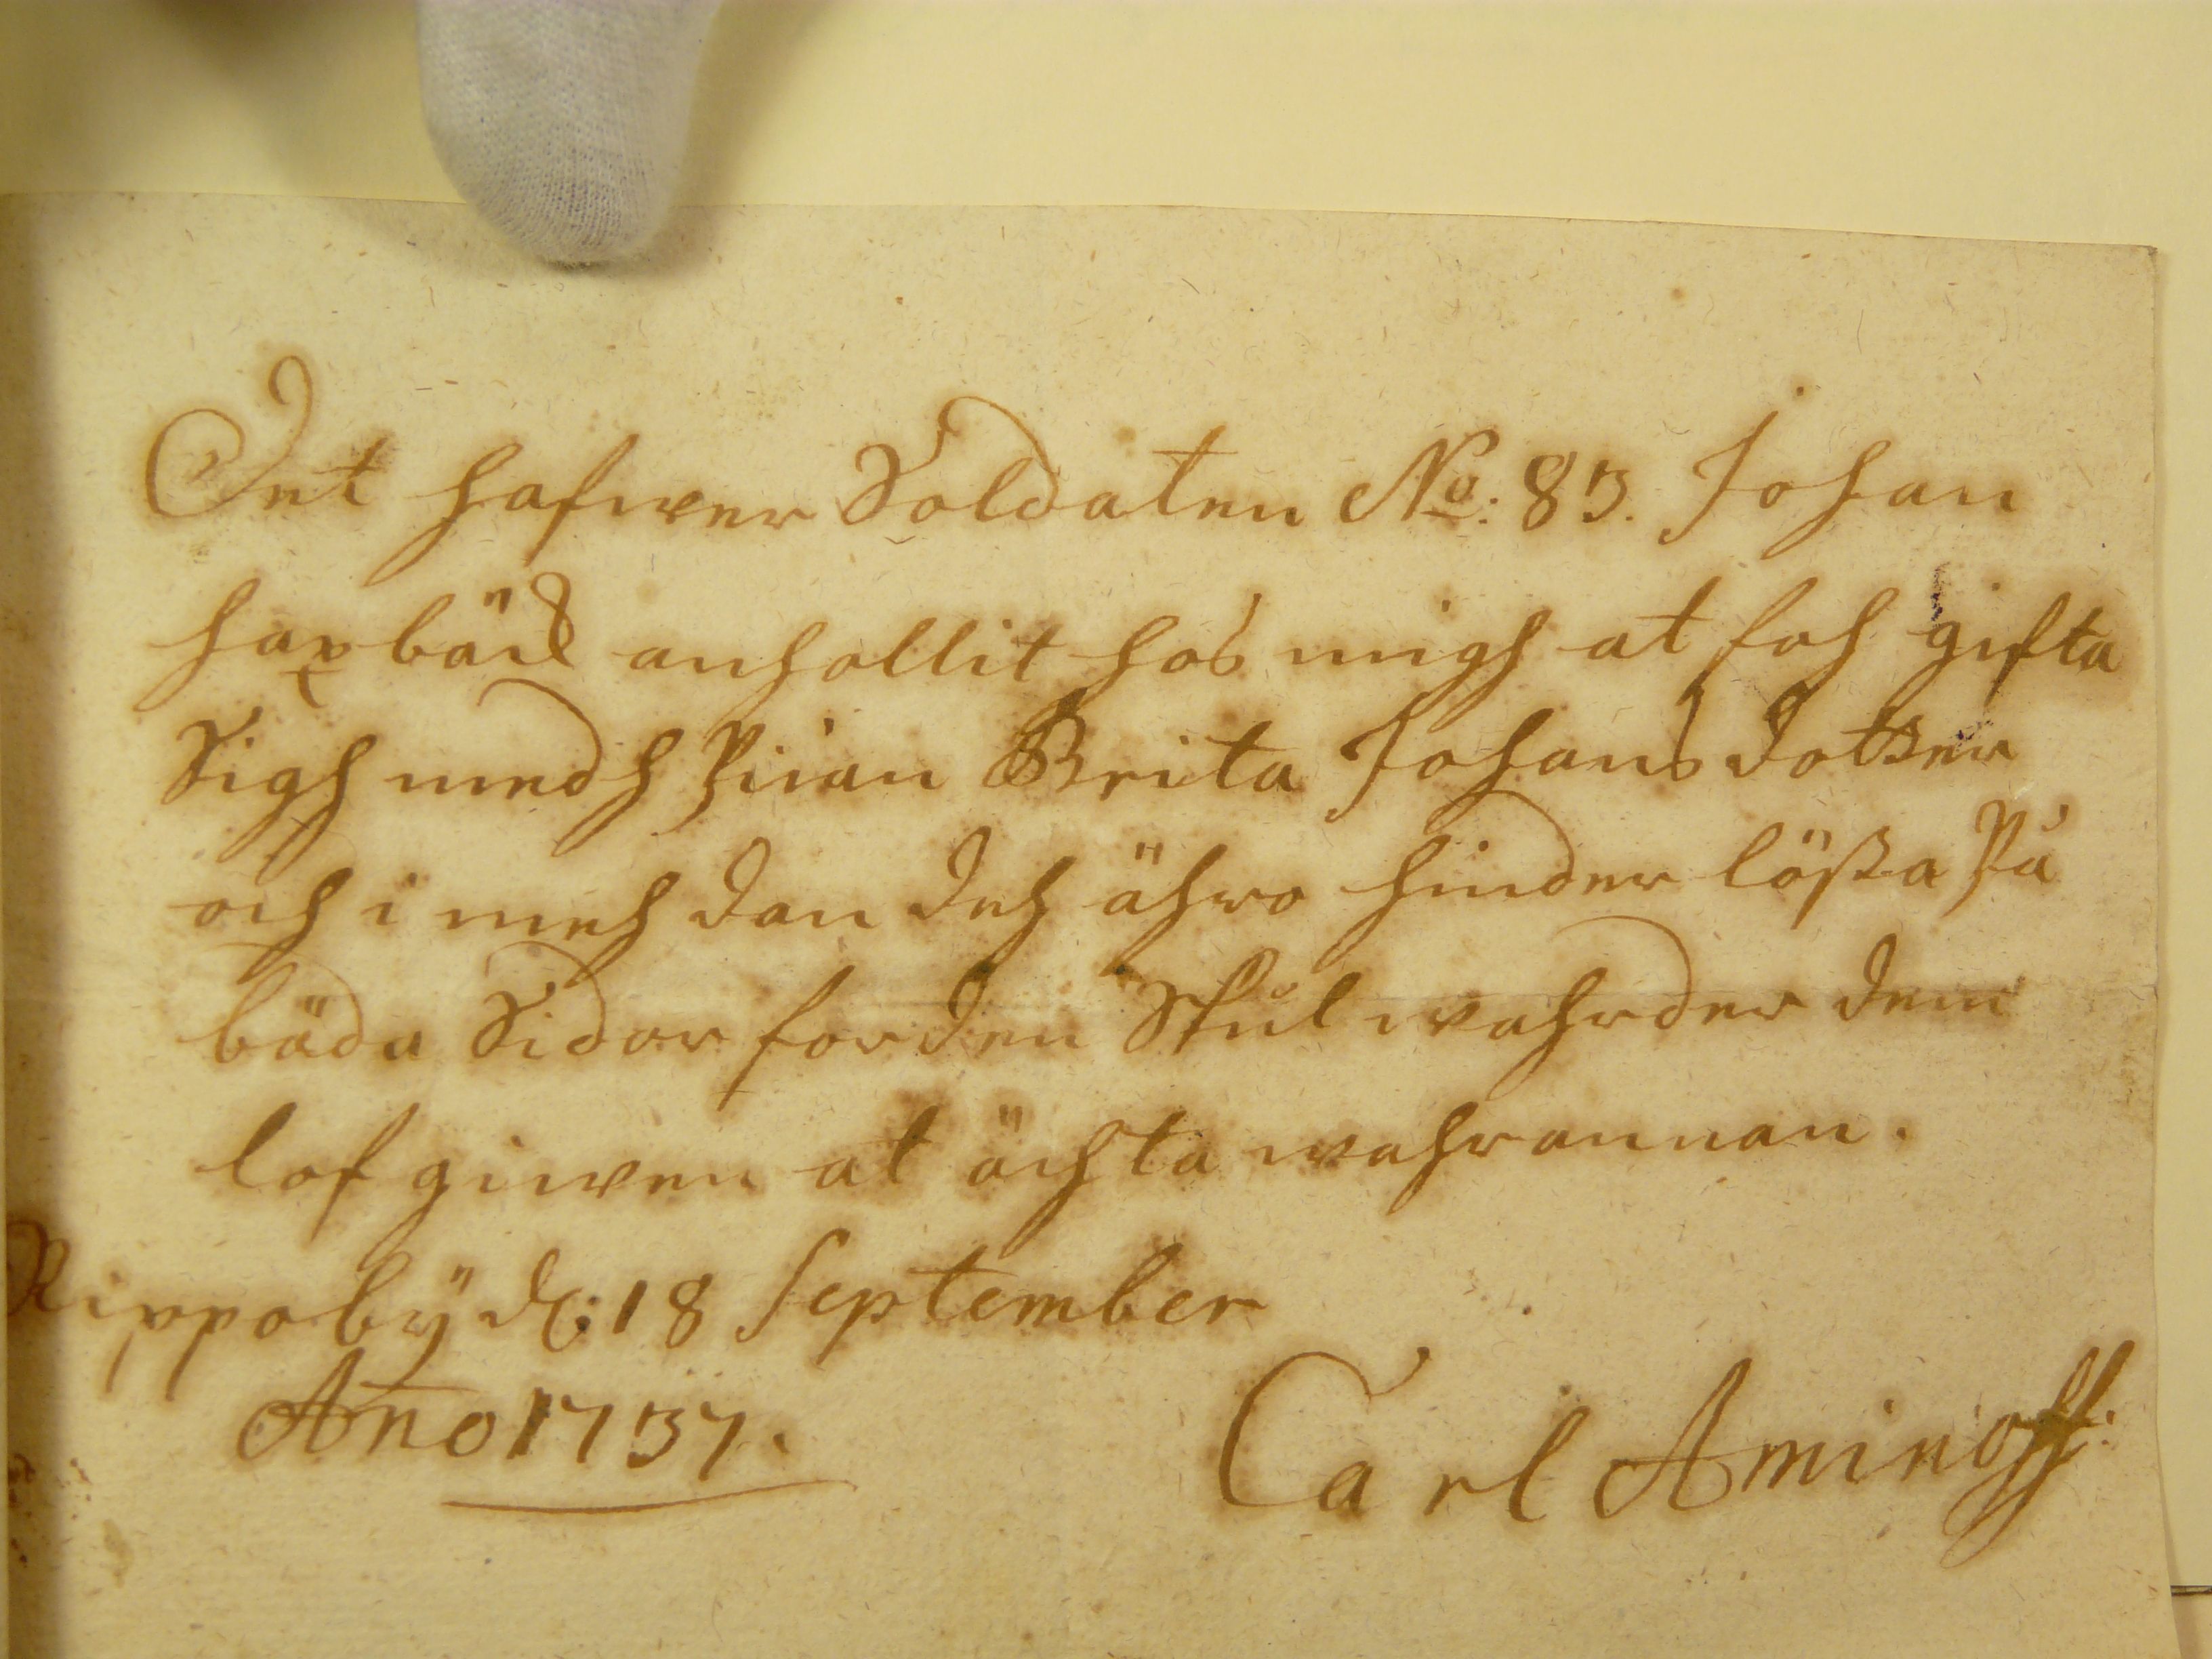 Det hafwer Soldaten No: 83. Johan
haxbäck anhollit hos migh at foh gifta
Sigh medh Piian Brita Johansdotter
och i meh dan deh ähro hinder lößa På
båda Sidor for den Skul wahrder dem
lof giwen at ächta wahrannan.
Rippobÿ d: 18 September
Ano 1737.
Carl Aminoff: